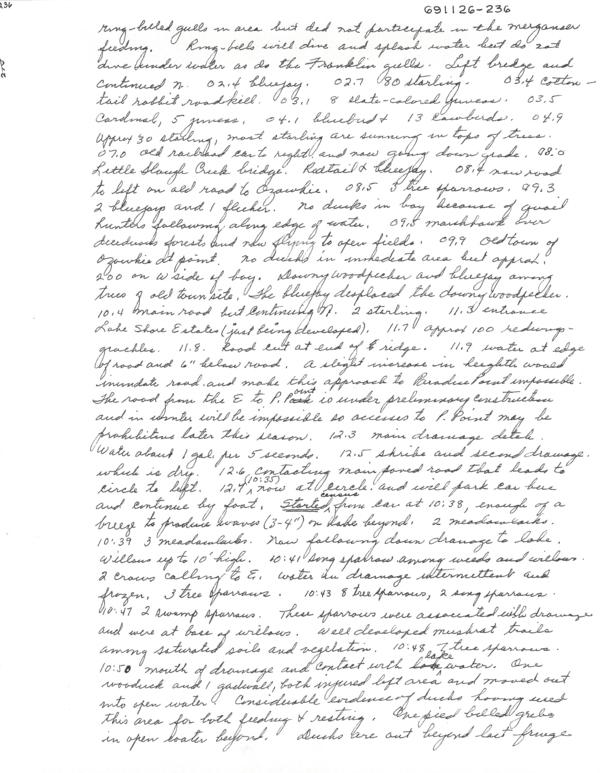 691126-236
ring-billed gulls in area but did not participate in the merganser
feeding. Ring-bills will dive and splash water but do not
dive under water as do the Franklin gulls. Left bridge and
continued N. 02.4 bluejay. 02.7 80 starling. 03.4 cotton-
tail rabbit roadkill. 03.1 8 slate-colored juncos. 03.5
Cardinal, 5 juncos. 04.1 bluebird & 13 cowbirds. 04.9
Approx 30 starling, most starling are sunning in tops of trees.
07.0 old railroad car to right and now going down grade. 08.0
Little Slough Creek bridge. Redtail & bluejay. 08.4 now road
to left on old road to Ozawkie. 08.5 3 tree sparrows. 09.3
2 bluejays and 1 flicker. No ducks in bay because of quail
hunters following along edge of water. 09.5 marsh hawk over
deciduous forests and now flying to open fields. 09.9 Old town of
Ozawkie at point. No ducks in immediate area but approx.
200 on W side of bay. Downy woodpecker and bluejay among
trees of old town site. The bluejay displaced the downy woodpecker.
10.4 main road but continuing N. 2 starling. 11.3 entrance
Lake Shore Estates (just being developed). 11.7 approx 100 redwings-
grackles. 11.8. Road cut at end of E ridge. 11.9 water at edge
of road and 6" below road. A slight increase in heighth would
inundate road and make this approach to Paradise Point impossible.
The road from the E to P. Point is under preliminary construction
and in winter will be impossible so accesses to P. Point may be
prohibitive later this season. 12.3 main drainage ditch.
Water about 1 gal per 5 seconds. 12.5 shribs and second drainage
which is dry. 12.6 contacting main paved road that leads to
circle to left. 12.7 (10:35) now at circle and will park car here
and continue by foot. Started census from car at 10:38, enough of a
breeze to produce waves (3-4") on lake beyond. 2 meadowlarks.
10:39 3 meadowlarks. Now following down drainage to lake.
Willows up to 10' high. 10:41 song sparrow among weeds and willows.
2 crows calling to E. Water in drainage intermittent and
frozen. 3 tree sparrows. 10:43 8 tree sparrows, 2 song sparrows.
10:47 2 swamp sparrows. These sparrows were associated with drainage
and were at base of willows. Well developed muskrat trails
among saturated soils and vegetation. 10:48 7 tree sparrows.
10:50 mouth of drainage and contact with lake water. One
woodduck and 1 gadwall, both injured left area and moved out
into open water. Considerable evidence of ducks having used
this area for both feeding & resting. One pied billed grebe
in open water beyond. Ducks are out beyond last fringe